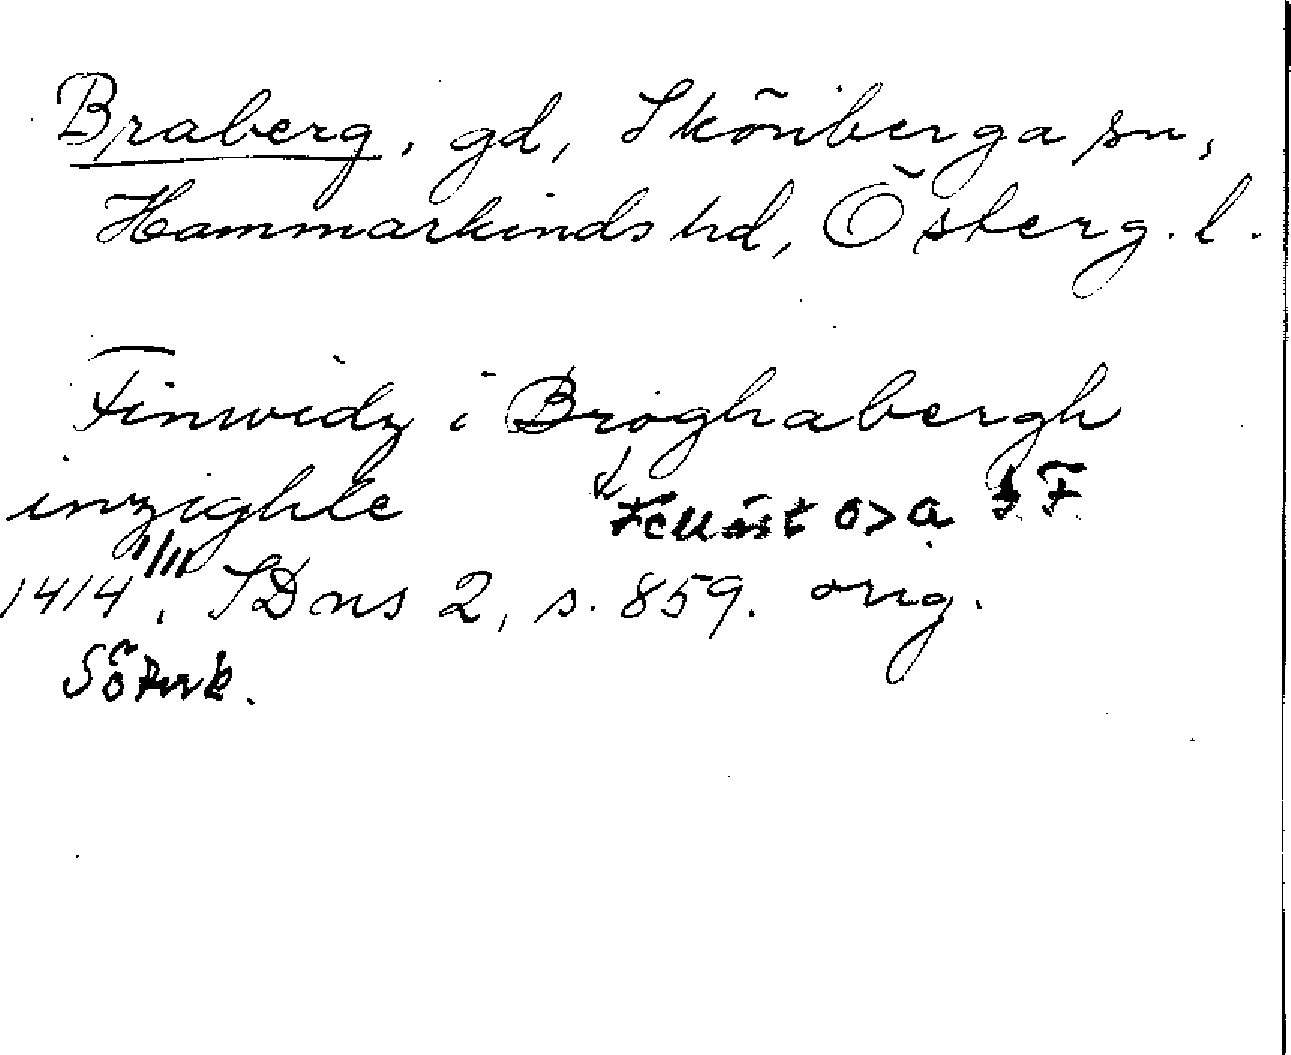 Braberg, gd, Skönberga sn,
Hammarkinds hd, Österg. l.
Finwidz i Broghabergh
inzighle
Felläst o > a
1414 1/11, SD ns 2, s. 859. orig.
Söderk.